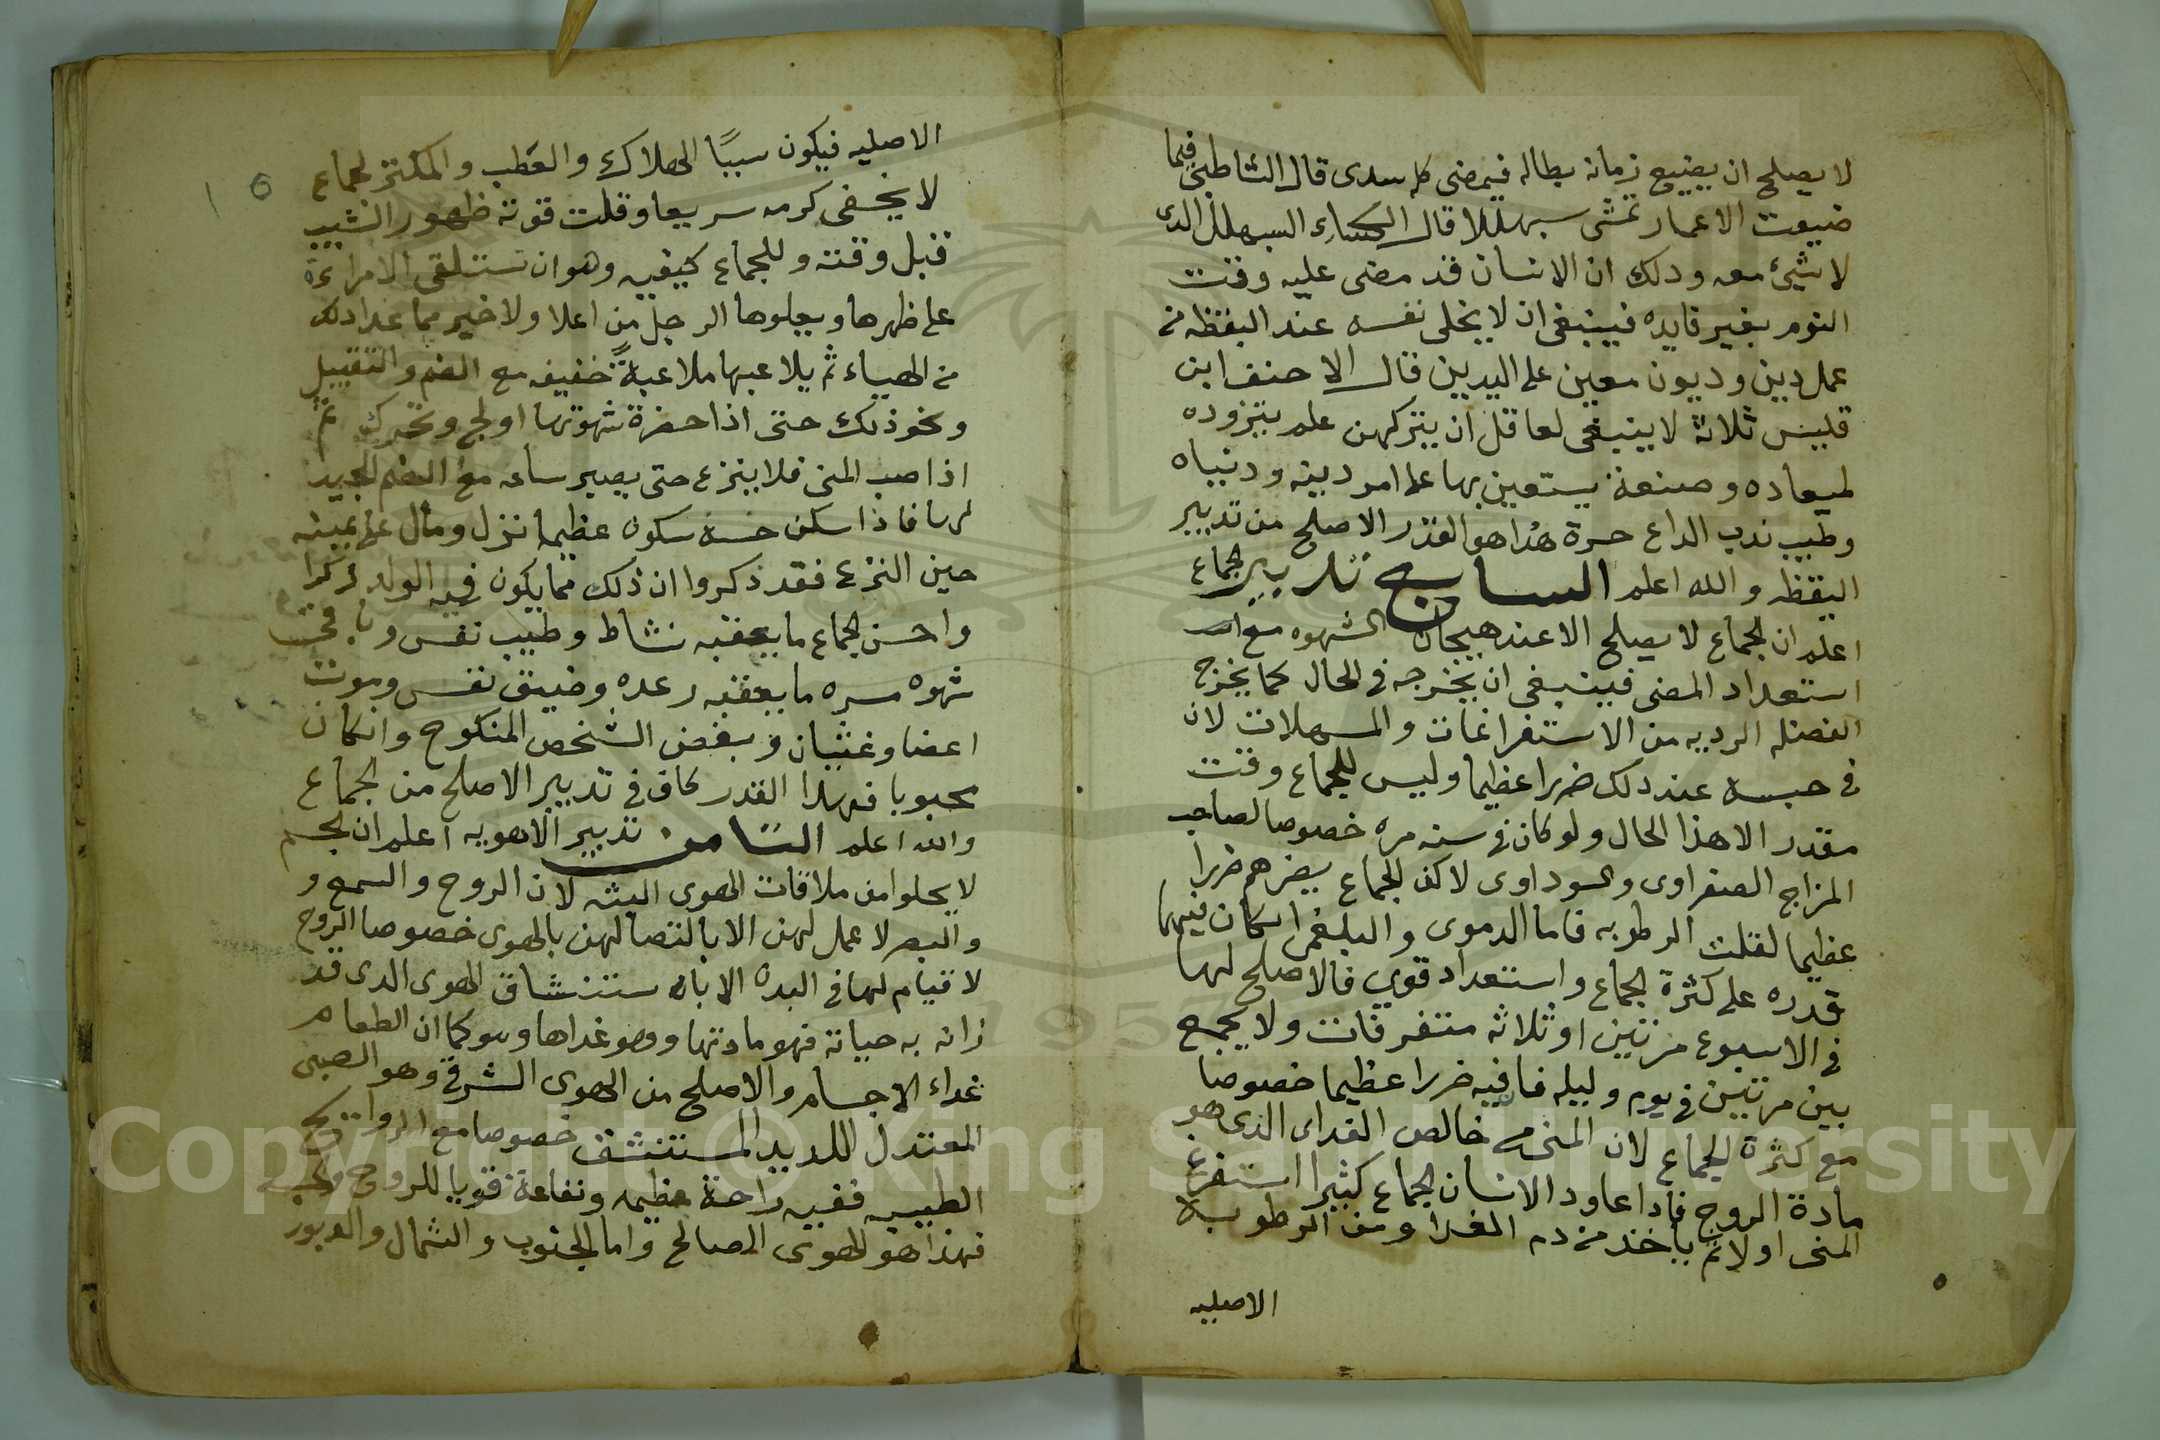 لا يصلح ان يضيع زمانه بطاله فيمضي كله سدى قال الشاطبي فيما
ضيعت الاعمار تمشى سبهللا قال الكساءى السبهلل الدى
لا شيئ معه ودلك ان الانسان قد مضى عليه وقت
النوم بغير فايده فينبغى ان لا يخلى نفسه عند اليقظه من
عمل دين وديون معين على اليدين قال الاحنف ابن
قليس ثلاثة لا ينبغى لعاقل ان يتركهن علم يتزوده
لميعاده وصنعة يستعين بها على امر دينه ودنياه
وطبيب ندب الداع حرة هدا هو القدر الاصلح من تدبير
اليقظه والله اعلم السابع تدبير الجماع
اعلم ان الجماع لا يصلح الا عند هيجان الشهوه مع
استعداد المنى فينبغى ان يخرجه فى الحال كما يخرج
الفضله الرديه من الاستفراغات والمسهلات لان
فى حبسه عند دلك ضررا عظيما وليس للجماع وقت
مقدر الا هذا الحال ولو كان فى سنه مره خصوصا لصاحب
المزاج الصفراوى والسوداوى لاكن الجماع يضرهم ضررا
عظيما لقلت الرطوبه فاما الدموى والبلغمى اكان فيهما
قدره على كثرة الجماع واستعداد قوي فالاصلح لهما
فى الاسبوع مرتين او ثلاثه متفرقات ولا يجمع
بين مرتين فى يوم وليله فافيه ضررا عظيما خصوصا
مع كثرة الجماع لان المنى من خالص الغداى الذى هو
مادة الروح فادا عاود الانسان الجماع كثيرا استفرغ
المنى اولا ثم ياخذ من دم الغدا ومن الرطوبة
الاصليه
٥
الاصليه فيكون سببًا الى هلاك والعَطب والمكثر لجماع
لا يخفى كرمه سريعا وقلت قوته ظهور الشيب
قبل وقته وللجماع كيفيه وهو ان تستلقى الامراءة
على ظهرها ويعلوها الرجل من اعلا ولا خير مما عدا دلك
من الهياءت ثم يلاعبها ملاعبةً خفيفه مع الضم والتقبيل
ونحو ذلك حتى اذا حضرة شهوتها اولج وتحرك ثم
اذا صب المنى فلا ينزع حتى يصير ساعه مع الضم الجيد
لها فاذا سكن سكون عظيما نزل ومال على يمينه
حين النزع فقد ذكروا ان ذلك مما يكون فيه الولد ذكرا
واحسن الجماع ما يعقبه نشاط وطيب نفس وباقى
شهوه سره ما يعقبه رعده وضيق نفس وموت
اعضا وغثيان وبغض الشخص المنكوح وانكان
محبوبا فهدا القدر كاف فى تدبير الاصلح من الجماع
والله اعلم الثامن تدبير الاهويه اعلم ان الجسم
لا يحلوا من ملاقات الهوى البته لان الروح والسمع و
والبصر لا عمل لهن الا بالتصالهن بالهوى خصوصا الروح
لا قيام لها فى البدن الا بان ستنشاق الهوى الدى قد
زاته به حياته فهو مادتها ووهو غداها وهو كما ان الطعام
غداء الاجسام والاصلح من الهوى الشرقى وهو الصبى
المعتدل اللديد المستنشق خصوصا مع الروائح
الطيبه ففيه راحة عظيمه ونفاعة قويا للروح والجسم
فهذا هو الهوى الصالح واما الجنوب والشمال والدبور
١٥
Copyright © King Saud University
1957